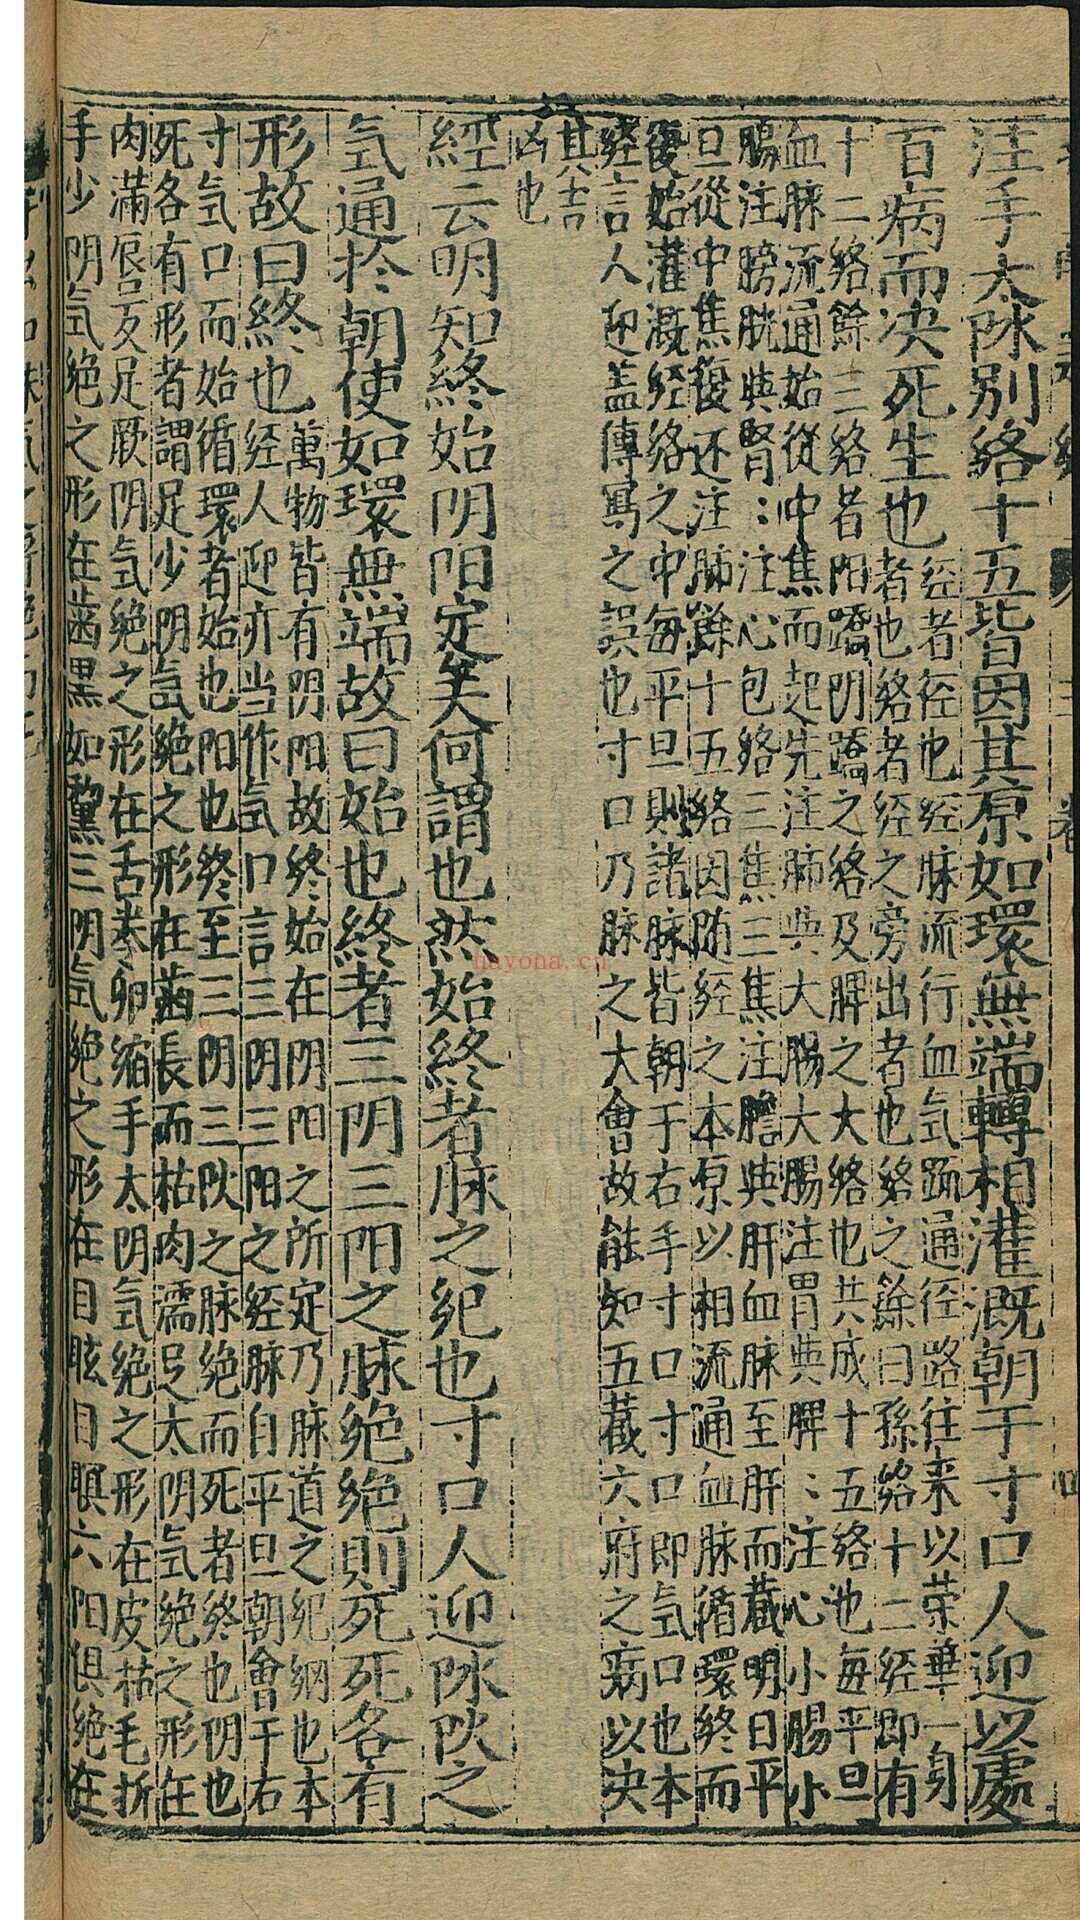 注手太阴别络十五皆因其原如環無端轉相灌溉朝于寸口人迎以處
百病而决死生也
經者徑也經脉流行血氣疏通徑路往来以荣華一身
者也絡者經之旁出者也絡之餘曰孫絡十二經即有
十二絡餘三絡者阳蹻阴蹻之絡及脾之大絡也共成十五絡也每平旦
血脉流通始從中焦而起先注肺與大腸大腸注胃與脾〻注心小腸小
腸注膀胱與腎〻注心包絡三焦三焦注膽與肝血脉至肝而藏明日平
旦從中焦復还注肺餘十五絡因随經之本原以相流通血脉循環終而
復始灌溉經絡之中每平旦則諸脉皆朝于右手寸口寸口即氣口也本
經言人迎盖傳寫之誤也寸口乃脉之大會故能知五藏六府之病以决
其吉
凶也
經云明知終始阴阳定矣何謂也然始終者脉之紀也寸口人迎阴阳之
氣通於朝使如環無端故曰始也終者三阴三阳之脉絶絶則死死各有
形故曰終也
萬物皆有阴阳故終始在阴阳之所定乃脉道之紀綱也本
經人迎亦当作氣口言三阴三阳之經脉自平旦朝會于右
寸氣口而始循環者始也阳也終至三阴三阳之脉絶而死者終也阴也
死各有形者謂足少阴氣絶之形在齒長而枯肉濡足太阴氣絶之形在
肉滿唇反足厥阴氣絶之形在舌拳卵縮手太阴氣絶之形在皮枯毛折
手少阴氣絶之形在齒黑如黧三阴氣絶之形在目眩目瞑六阳俱絶在
nayona.cn